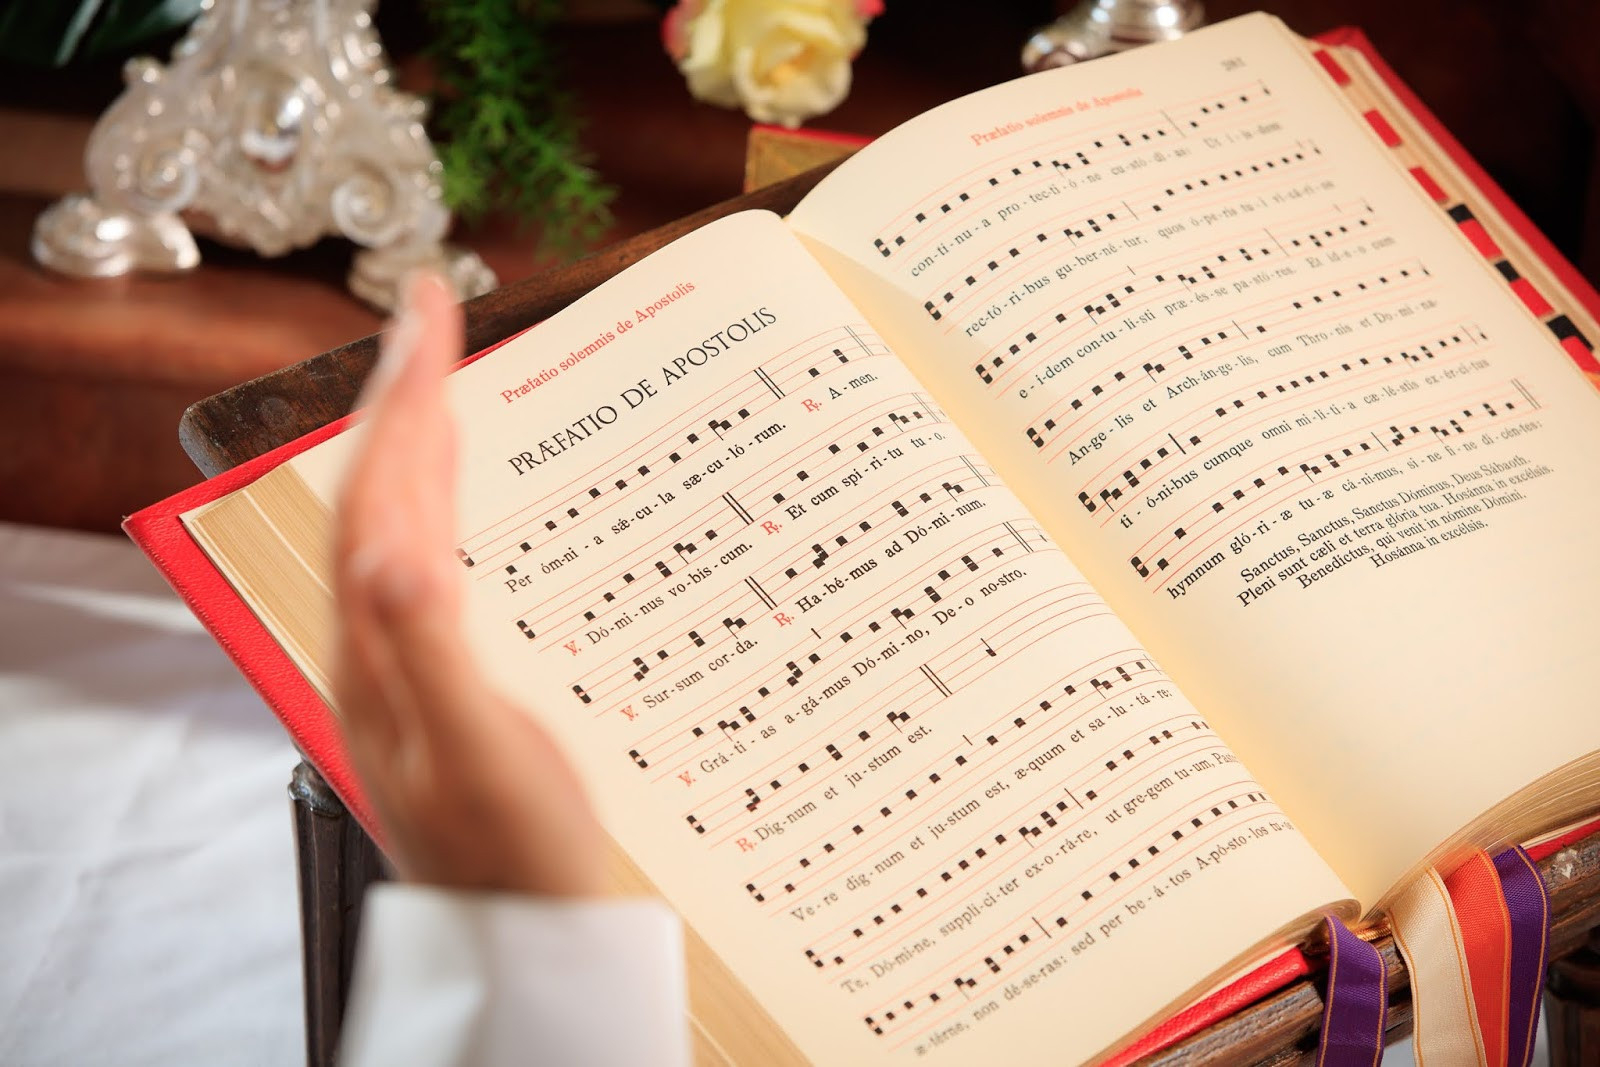 Præfatio solemnis de Apostolis
PRÆFATIO DE APOSTOLIS
Per óm-ni - a sǽ-cu-la sæ-cu-ló-rum. ℟. A-men.
℣. Dó-mi-nus vo-bis-cum. ℟. Et cum spi-ri-tu tu-o.
℣. Sur-sum cor-da. ℟. Ha-bé-mus ad Dó-mi-num.
℣. Grá-ti - as a-gá-mus Dó-mi-no, De-o no-stro.
℟. Dig-num et ju-stum est.
Ve-re dig-num et ju-stum est, æ-quum et sa-lu-tá-re:
Te, Dó-mi-ne, suppli-ci-ter ex-o-rá-re, ut gre-gem tu-um,
æ-térne, non dé-se-ras: sed per be-á-tos A-pó-sto-los tu-
Præfatio solemnis de Apostolis
con-tí-nu-a pro-tec-ti-ó-ne cu-stó-di-as: Ut i-ísdem
rec-tó-ri-bus gu-ber-né-tur, quos ó-pe-ris tu-i vi-cá-ri-os
e-í-dem con-tu-lí-sti præ-és-se pa-stó-res. Et íd-e-o cum
An-ge-lis et Arch-án-ge-lis, cum Thro-nis et Do-mi-na-
ti-ó-ni-bus cumque omni mi-lí-ti-a cæ-lé-stis ex-ér-ci-tus
hymnum gló-ri-æ tu-æ cá-ni-mus, si-ne fi-ne di-cén-tes:
Sanctus, Sanctus, Sanctus Dóminus, Deus Sábaoth.
Pleni sunt cæli et terra glória tua. Hosánna in excélsis.
Benedíctus, qui venit in nómine Dómini.
Hosánna in excélsis.